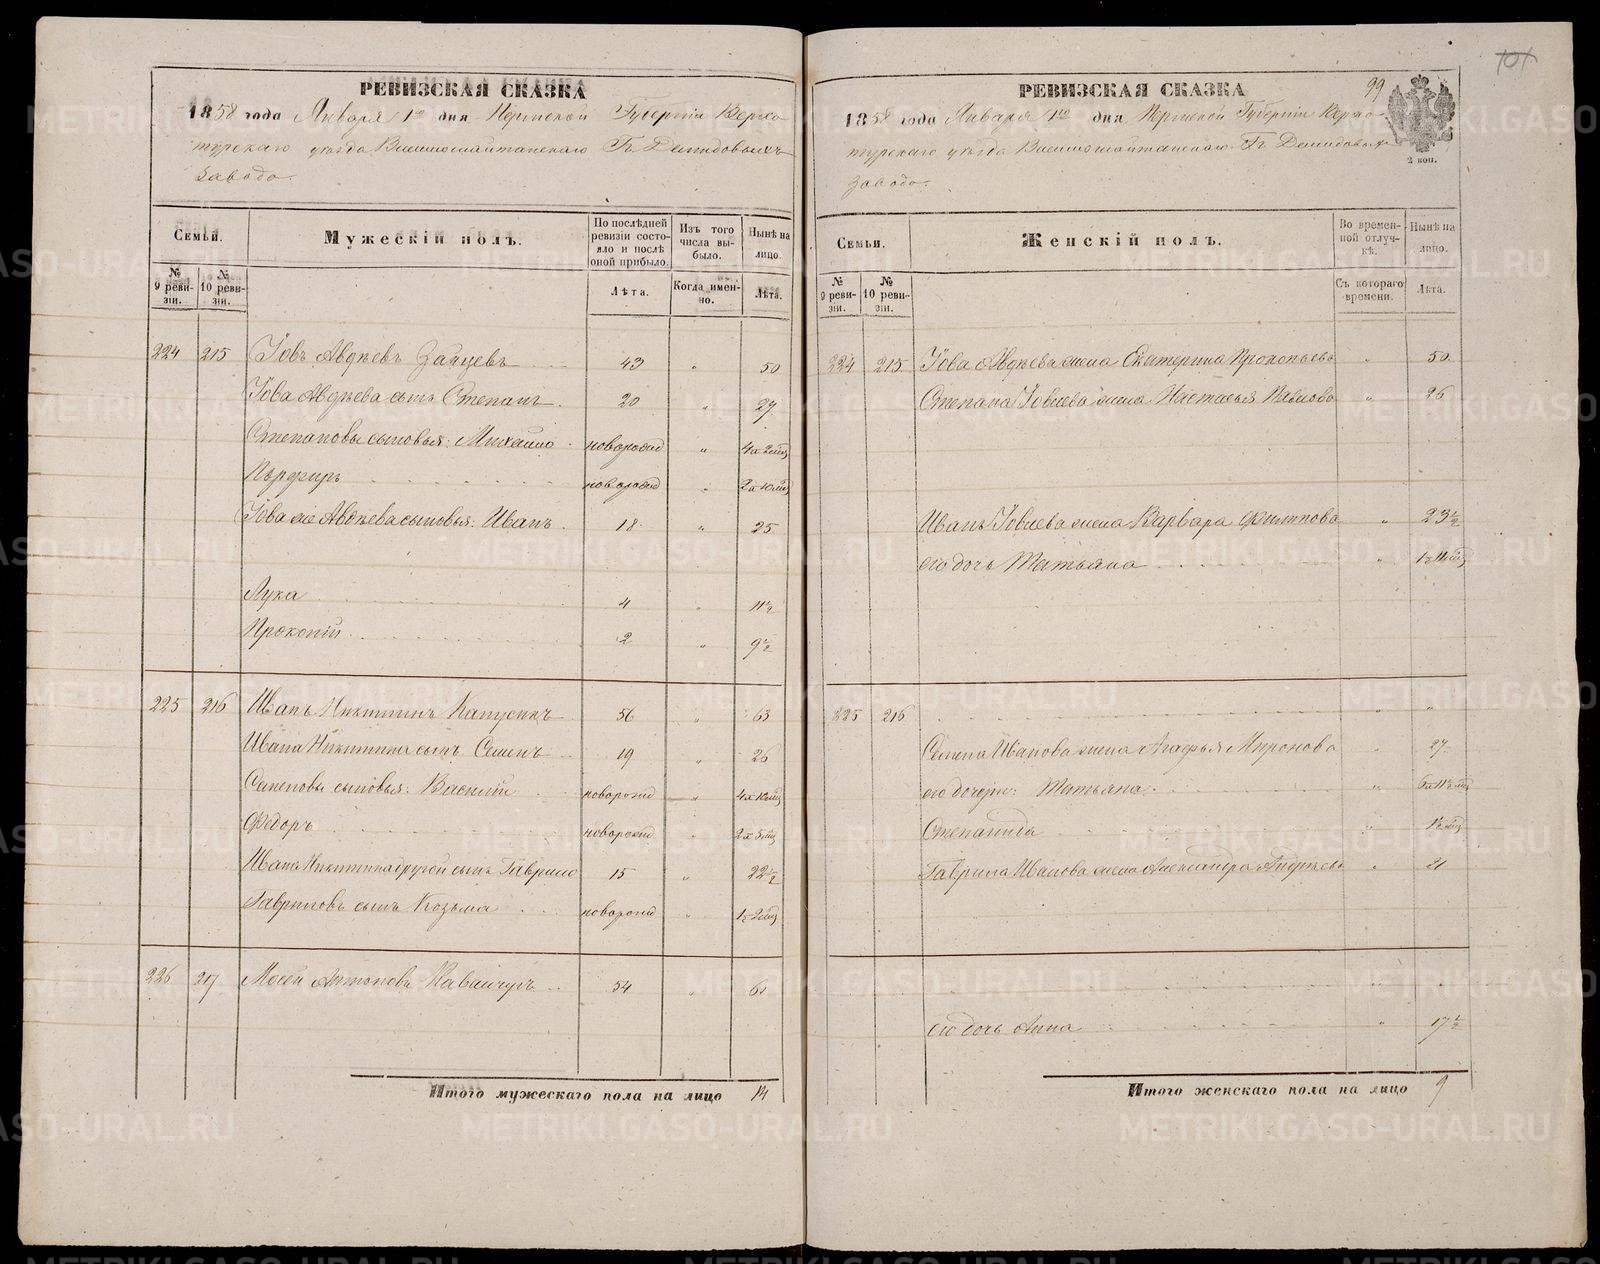 РЕВИЗСКАЯ СКАЗКА
1858 года Января 1го дня Пермской Губернiи Верхо-
турскаго уѣзда Висимошайтанскаго Гг. Демидовыхъ
завода.
Семьи.
Мужескiй полъ.
По послѣдней ревизiи состояло и послѣ оной прибыло.
Изъ того числа выбыло.
Нынѣ на лицо.
№ 9 ревизiи.
№ 10 ревизiи.
Лѣта.
Когда именно.
Лѣта.
224 215 Іовъ Авдѣевъ Зайцевъ 43 „ 50
Іова Авдѣева сынъ Степанъ 20 „ 27
Степановы сыновья: Михайло новорожд „ 4х 2 мц
Пѳрфиръ новорожд „ 2х 10 мц
Іова же Авдѣева сыновья: Иванъ 18 „ 25
Лука 4 „ 11½
Прокопiй 2 „ 9½
225 216 Иванъ Никитинъ Капусинъ 56 „ 63
Ивана Никитина сынъ Семенъ 19 „ 26
Семеновы сыновья: Василiй новорожд „ 4х 10 мц
Ѳедоръ новорожд „ 2х 5 мц
Ивана Никитина другой сынъ Гаврило 15 „ 22½
Гавриловъ сынъ Козьма новорожд „ 1г 2 мц
226 217 Мосей Антоновъ 54 „ 61
Итого мужескаго пола на лицо 14
101
99
РЕВИЗСКАЯ СКАЗКА
2 коп.
1858 года Января 1го дня Пермской Губернiи Верхо-
турскаго уѣзда Висимошайтанскаго Гг. Демидовых
завода.
Семьи.
Женскiй полъ.
Во временной отлучкѣ.
Нынѣ на лицо.
№ 9 ревизiи.
№ 10 ревизiи.
Съ котораго времени.
Лѣта.
224 215 Іова Авдѣева жена Екатерина Прокопьева „ 50
Степана Іовлева жена Настасья Павлова „ 26
Ивана Іовлева жена Варвара Филипова „ 23½
его дочь Татьяна „ 1г 11 мц
225 216 „ „
Семена Иванова жена Агафья Миронова „ 27
его дочери: Татьяна „ 6х 11½ мц
Степанида „ 1½ мц
Гаврила Иванова жена Александра Андрѣева „ 21
его дочь Анна „ 17½
Итого женскаго пола на лицо 9
METRIKI.GASO-URAL.RU